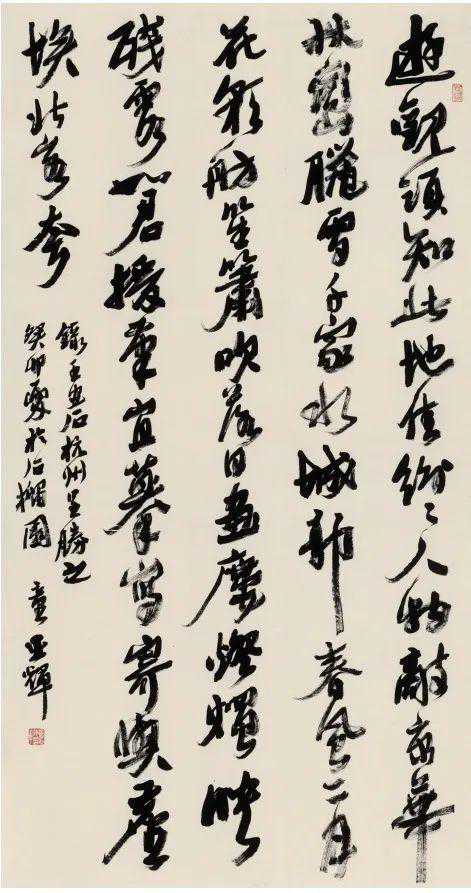 遊觀須知此地佳紛〻人物敵京華
林巒臘雪千家水城郭春風二月
花彩舫笙簫吹落日畫廔燈燭映
殘霞如君援筆宜摹寫寄與塵
埃北客夸
錄王安石杭州呈勝之
癸卯夏於石園 童亞輝